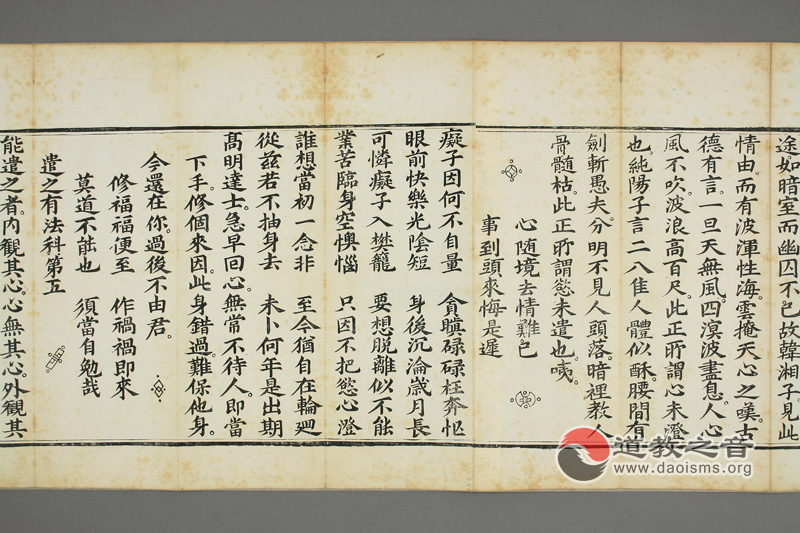 途如暗室而幽囚不已故韓湘子見此
情由而有波渾性海雲掩天心之嘆古
德有言一旦天無風四溟波盡息人心
風不吹波浪高百尺此正所謂心未澄
也純陽子言二八佳人體似酥腰間有
劍斬愚夫分明不見人頭落暗裡教人
骨髓枯此正所謂慾未遣也咦
心随境去情難已
事到頭來悔是遲
癡子因何不自量 貪瞋碌碌枉奔忙
眼前快樂光陰短 身後沉淪歲月長
可憐癡子入樊籠 要想脱離似不能
業苦臨身空懊惱 只因不把慾心澄
誰想當初一念非 至今猶自在輪廻
從兹若不抽身去 未卜何年是出期
髙明達士急早回心無常不待人即當
下手修個來因此身錯過難保他身
今還在你過後不由君
修福福便至 作禍禍即來
莫道不能也 須當自勉哉
遣之有法科第五
能遣之者内觀其心心無其心外觀其
道教之音
www.daoisms.org